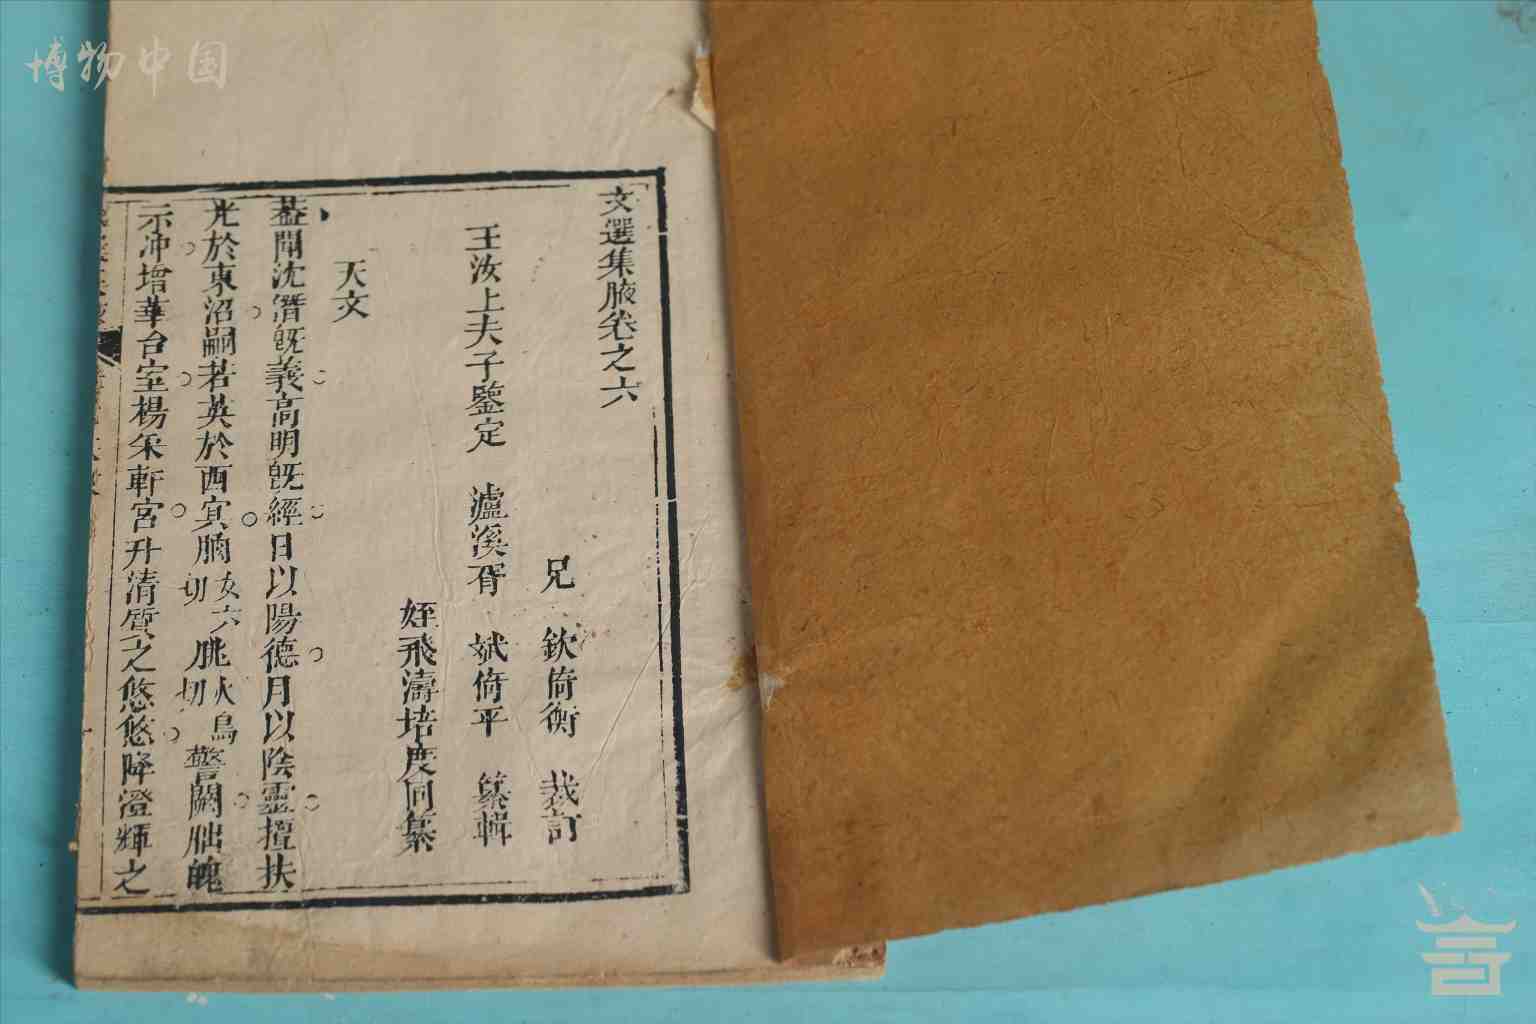 博物中国
文選集腋卷之六
兄 欽倚衡 裁訂
王汝上夫子鑒定 瀘溪胥 斌倚平 纂輯
姪飛濤培度同纂
天文
蓋聞沈潛旣義高明旣經日以陽德月以陰靈擅扶
光於東沼嗣若英於西㝠朒女六切朓火鳥切警闕朏魄
示冲增華台室楊采軒宮升清質之悠悠降澄輝之